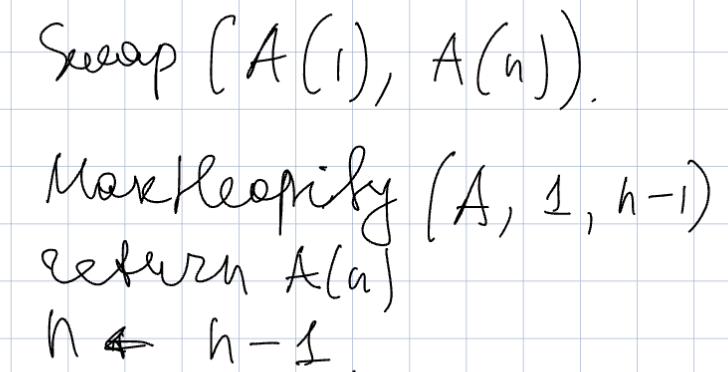 Swap (A(1), A(n)).
MaxHeapify (A, 1, n-1)
return A(n)
n ← n-1.